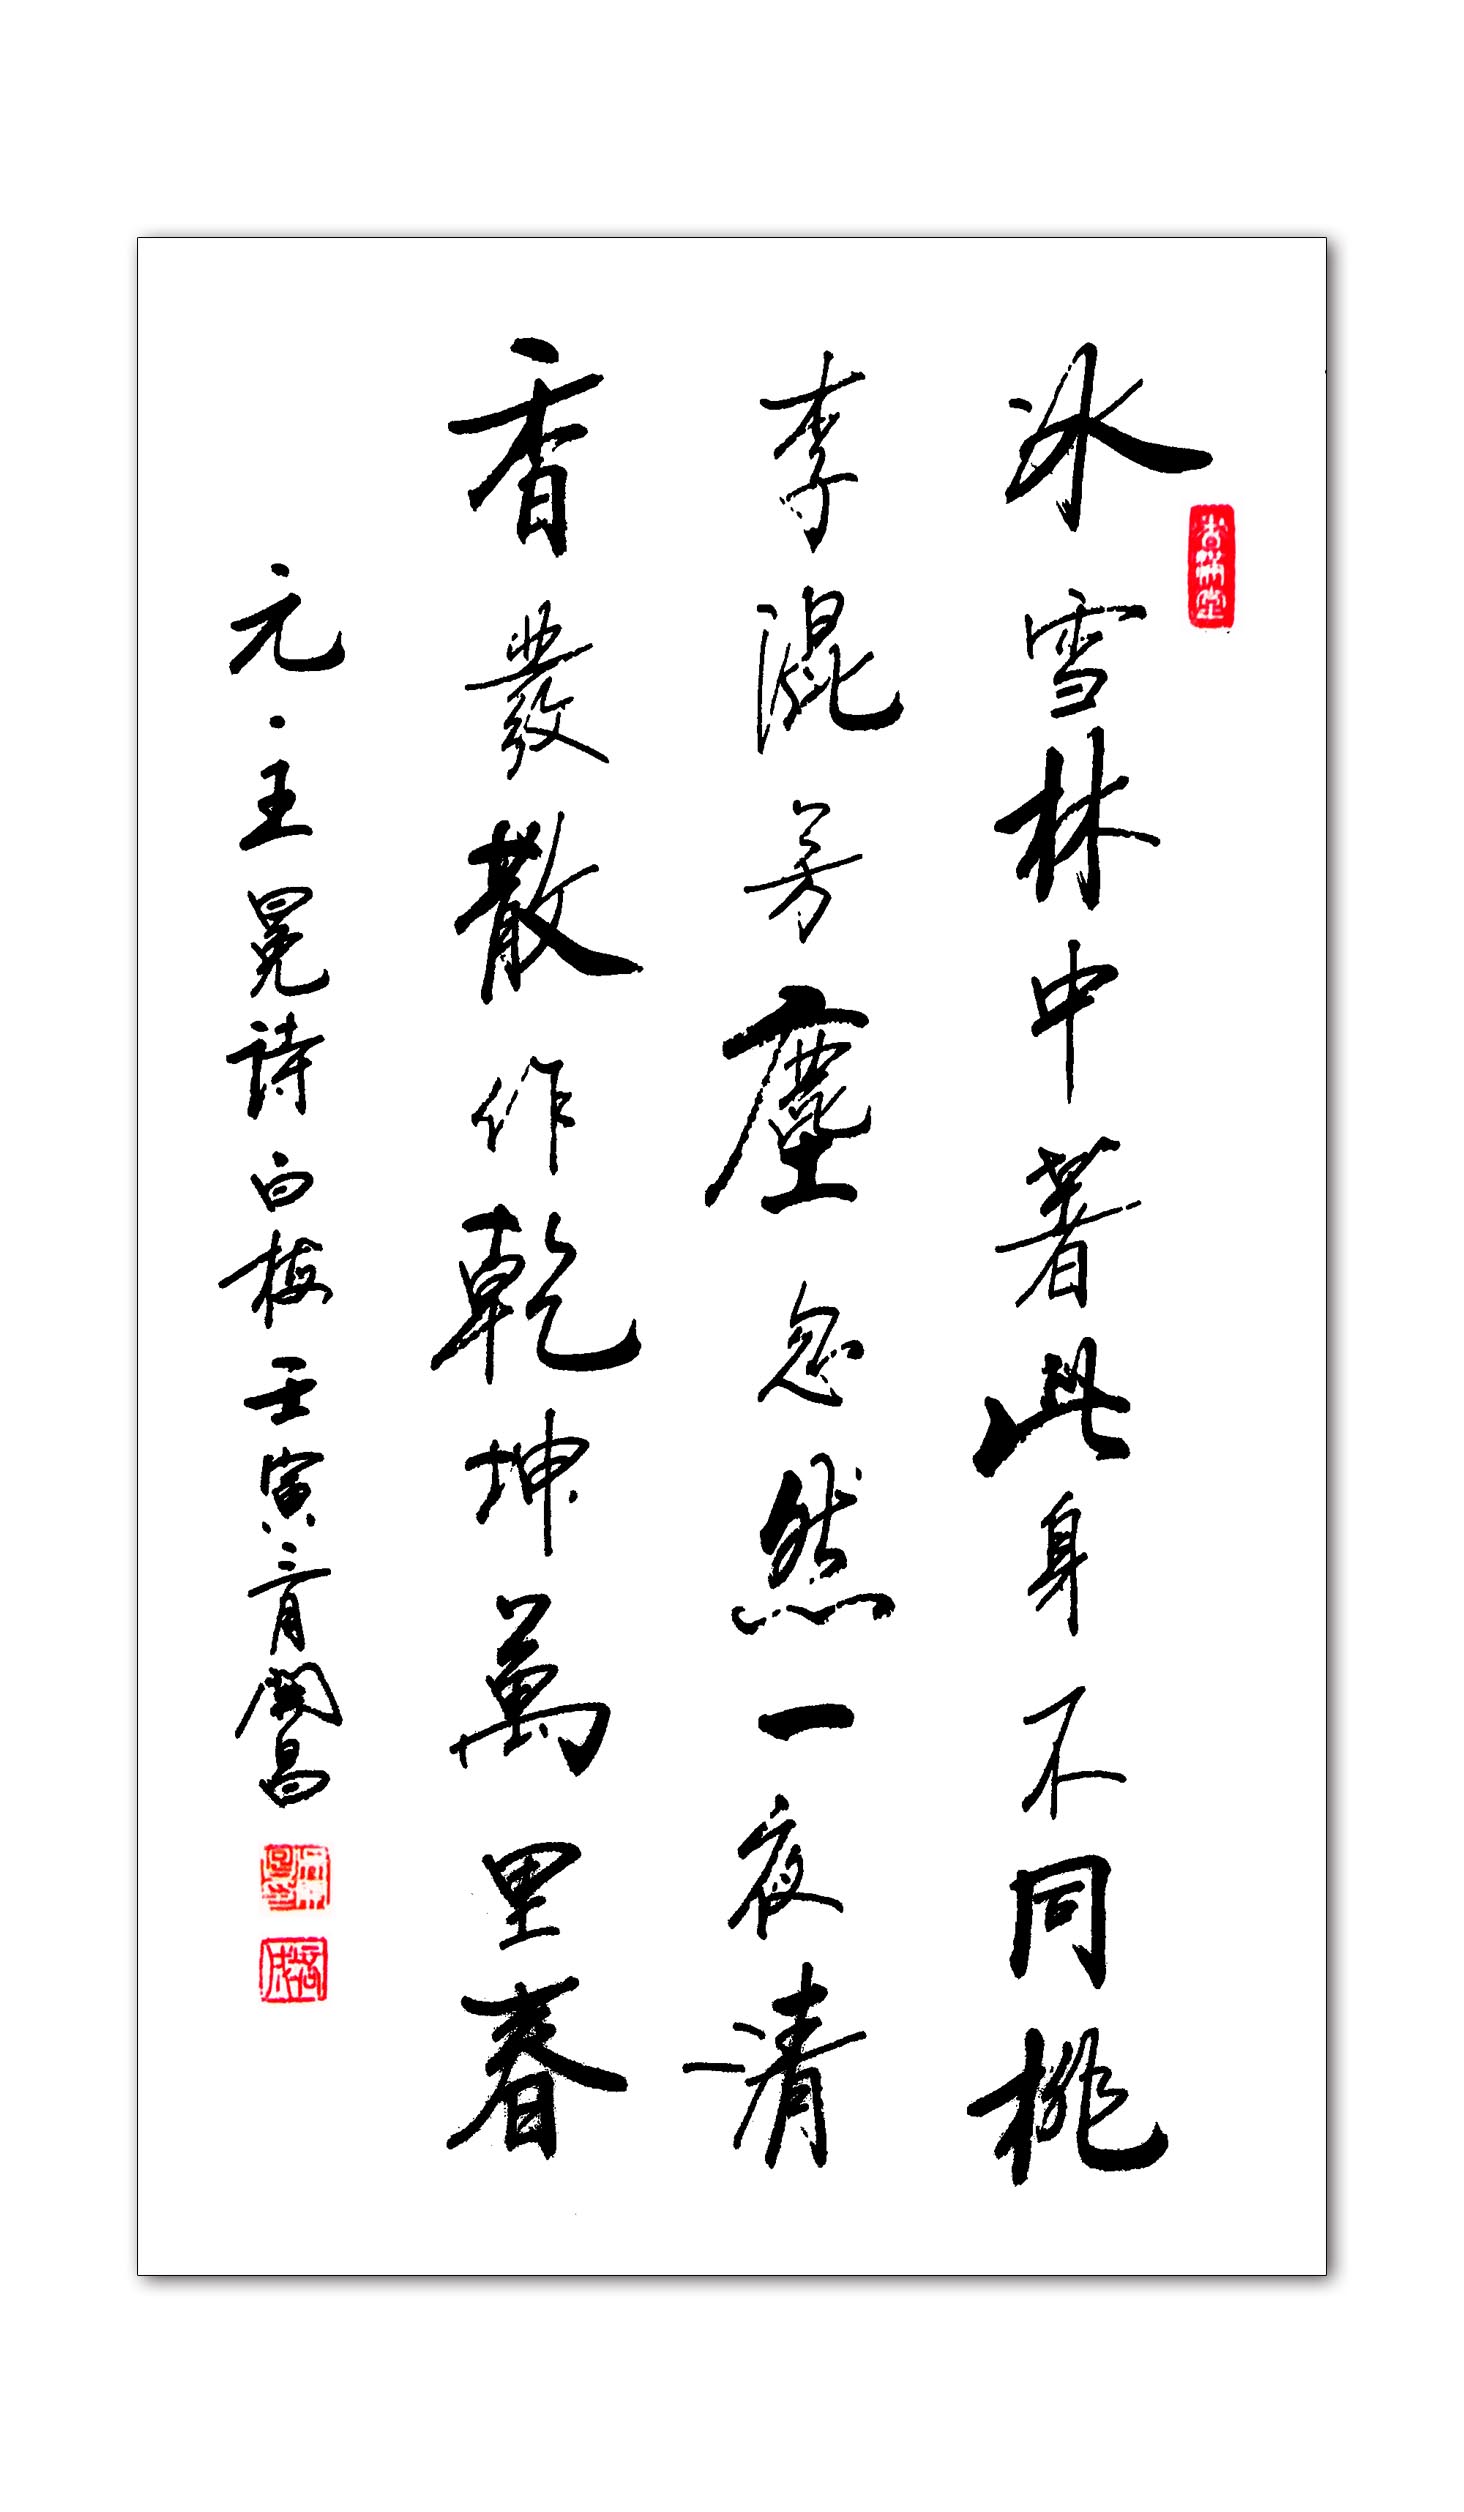 冰雪林中著此身不同桃
李混芳塵忽然一夜清
香發散作乾坤萬里春
元·王冕詩白梅壬寅六月開昌